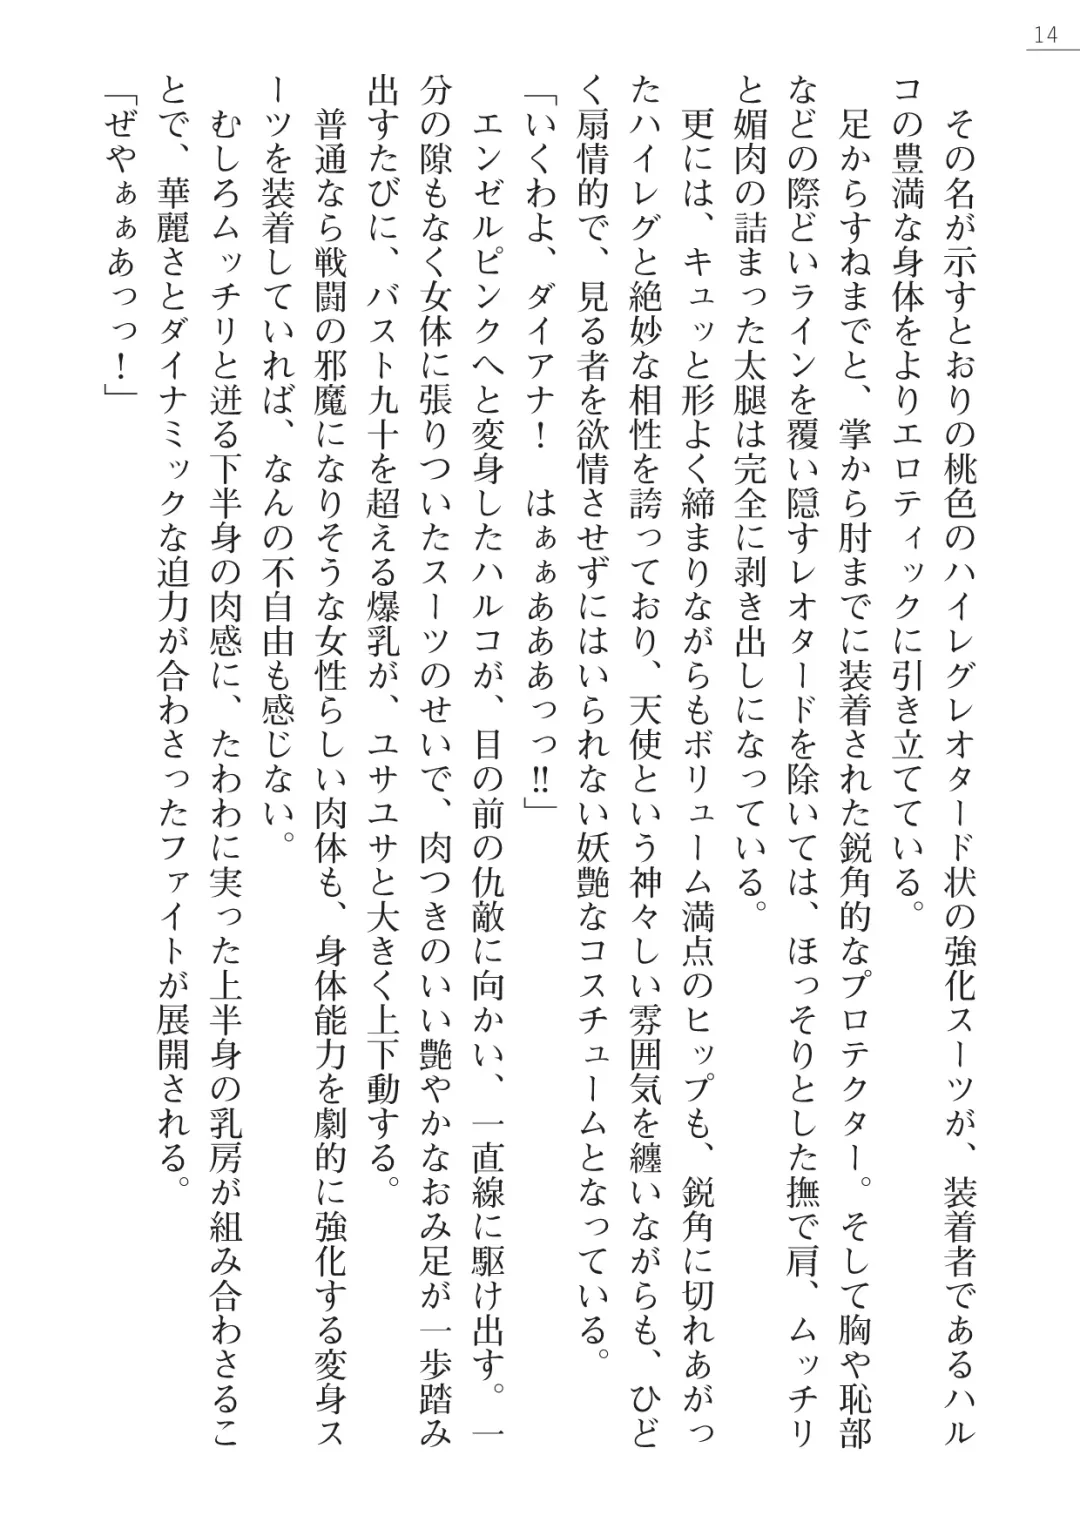 14
その名が示すとおりの桃色のハイレグレオタード状の強化スーツが、装着者であるハル
コの豊満な身体をよりエロティックに引き立てている。
足からすねまでと、掌から肘までに装着された鋭角的なプロテクター。そして胸や恥部
などの際どいラインを覆い隠すレオタードを除いては、ほっそりとした撫で肩、ムッチリ
と媚肉の詰まった太腿は完全に剥き出しになっている。
更には、キュッと形よく締まりながらもボリューム満点のヒップも、鋭角に切れあがっ
たハイレグと絶妙な相性を誇っており、天使という神々しい雰囲気を纏いながらも、ひど
く扇情的で、見る者を欲情させずにはいられない妖艶なコスチュームとなっている。
「いくわよ、ダイアナ！　はぁぁあああっっ‼」
エンゼルピンクへと変身したハルコが、目の前の仇敵に向かい、一直線に駆け出す。一
分の隙もなく女体に張りついたスーツのせいで、肉つきのいい艶やかなおみ足が一歩踏み
出すたびに、バスト九十を超える爆乳が、ユサユサと大きく上下動する。
普通なら戦闘の邪魔になりそうな女性らしい肉体も、身体能力を劇的に強化する変身ス
ーツを装着していれば、なんの不自由も感じない。
むしろムッチリと迸る下半身の肉感に、たわわに実った上半身の乳房が組み合わさるこ
とで、華麗さとダイナミックな迫力が合わさったファイトが展開される。
「ぜやぁぁあっっ！」